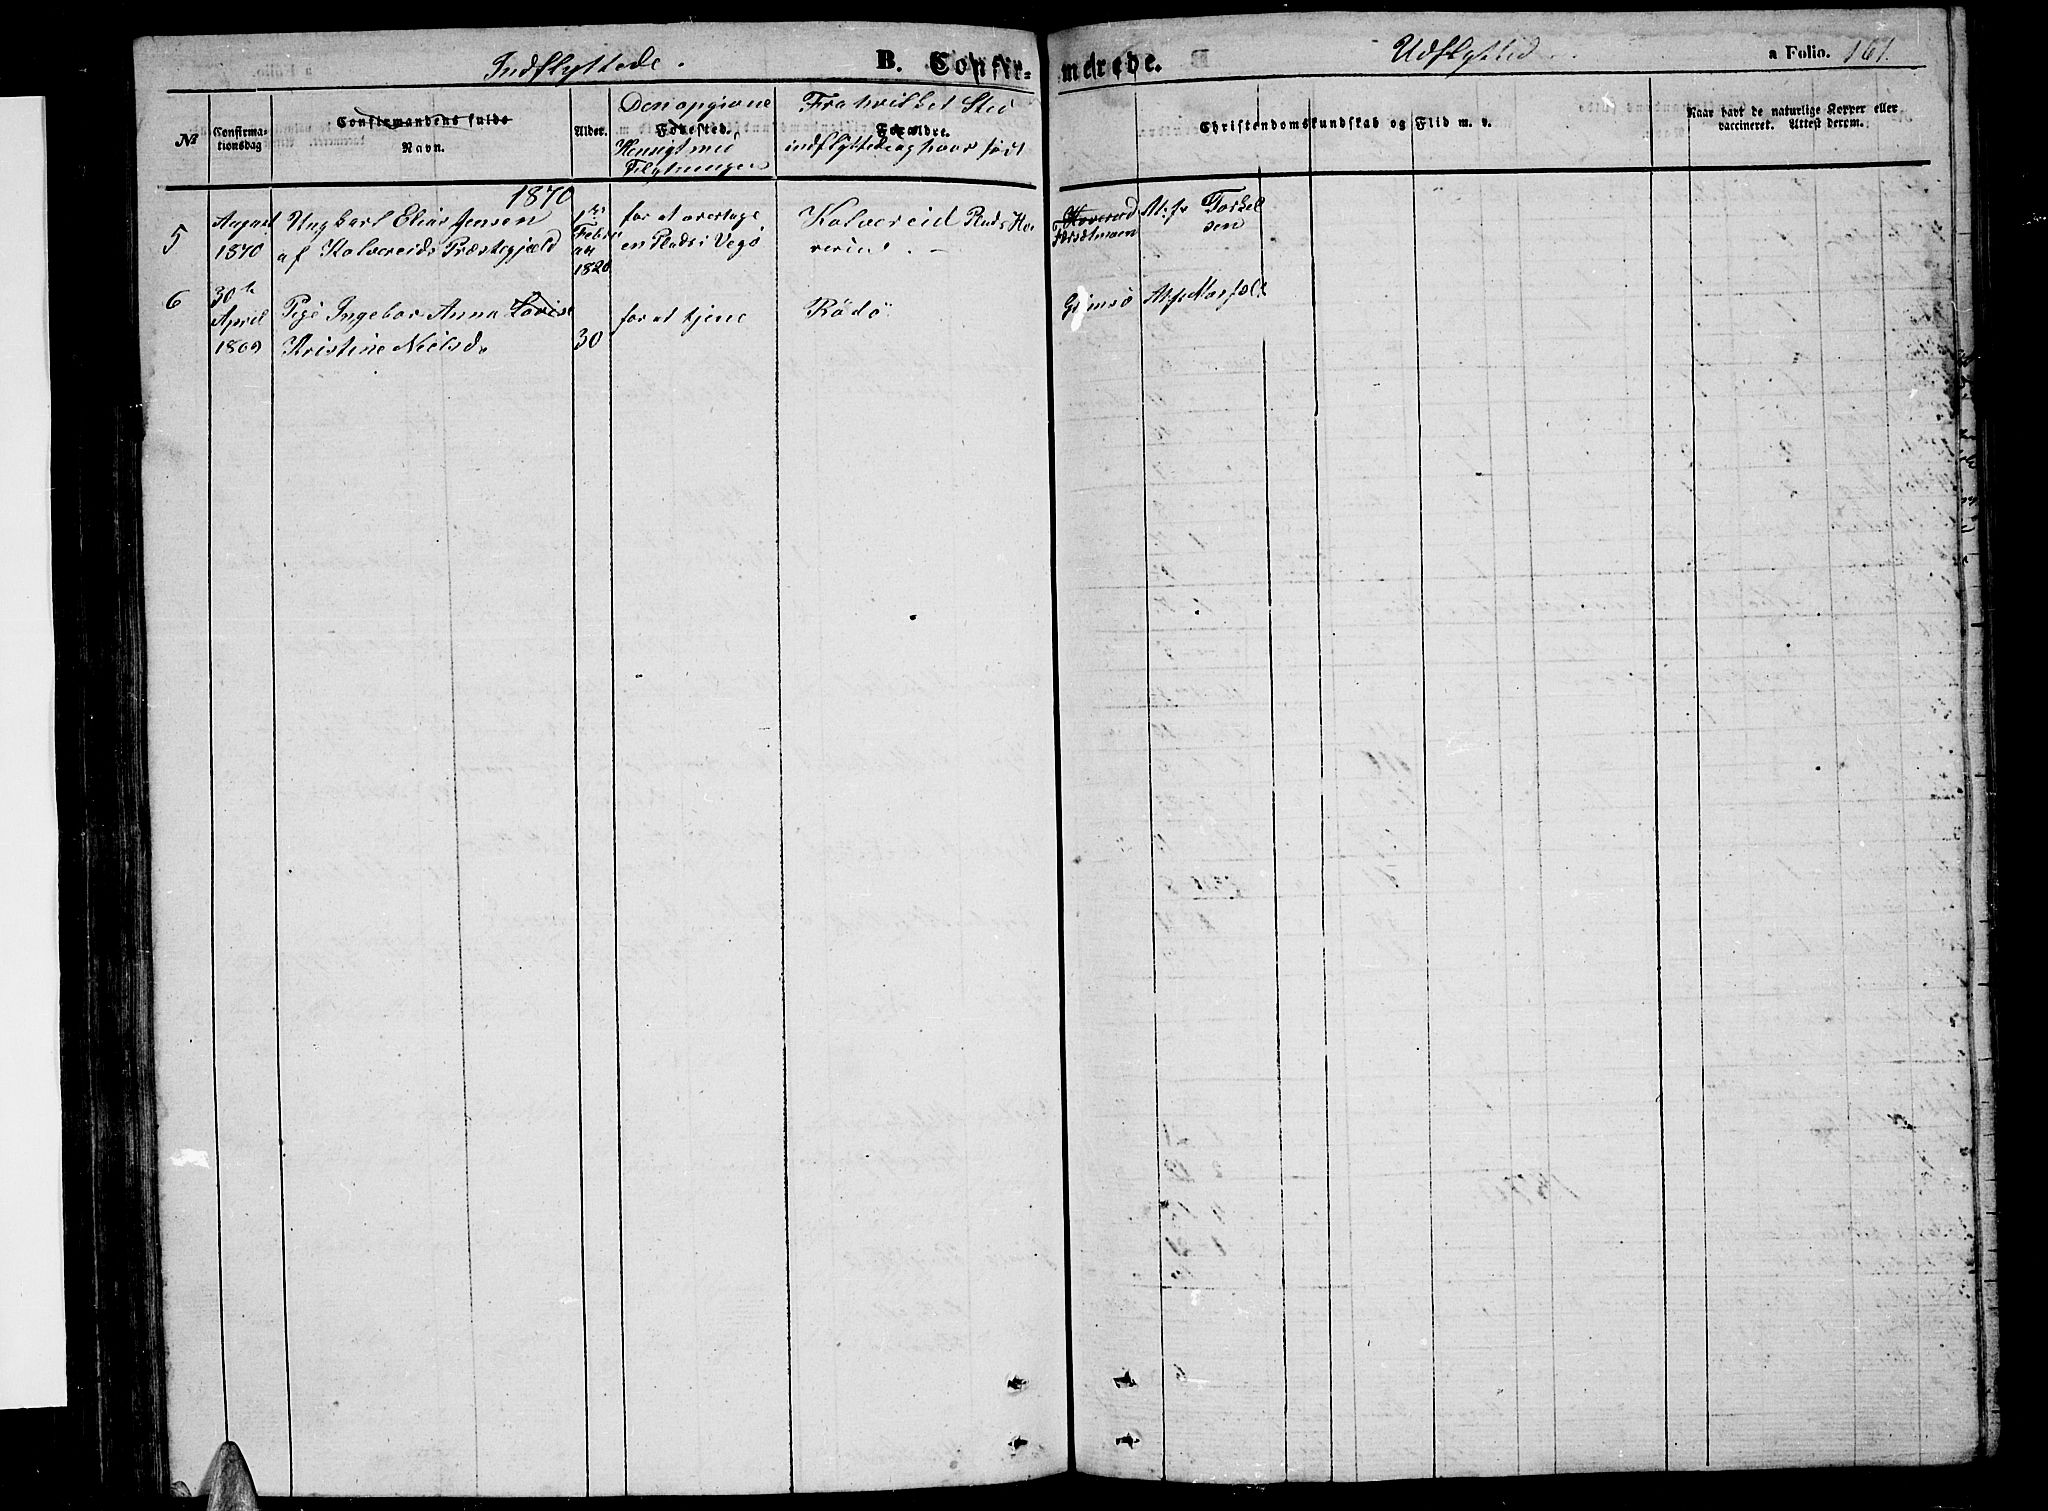 Indflyttede. B. Confir-merede. Udflytted a Folio. 161.
№
Confirma-
tionsdag
Confirmandens fulde
Navn.
Alder.
Den opgivne
Fødested.
Hensigt med
Flytningen
Fra hvilket Sted
Forældre.
indflyttede og hvor født
Christendomskundskab og Flid m. v.
Naar havt de naturlige Kopper eller
vaccineret. Attest derom.
1870
5
August
1870
Ungkarl Elias Jensen
af Kolvereids Præstegjæld
1ste
Febru
ar
1820
for at overtage
en Plads i Vegø
Kolvereid Plads Ho
verind
Hoverød
M. fr Torkel
sen
6
30te
April
1869
Pige Ingebor Anna Lovise
Kristine Nielsd.
30
for at tjene
Rödö
Gimsö